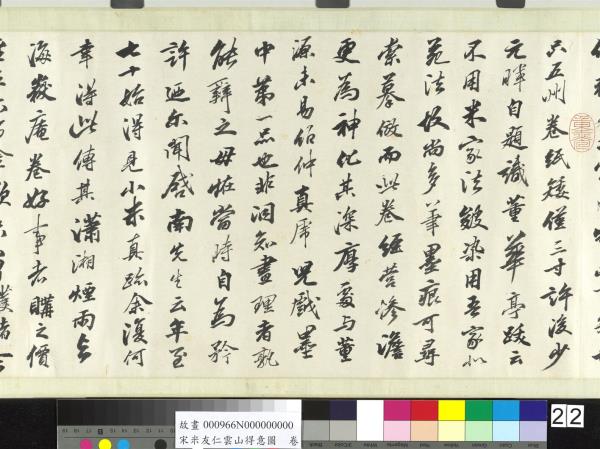 只五州卷紙矮僅三寸許後少
元暉自題識董華亭跋云
不用米家法皴染用吾家北
苑法故尚多筆墨痕可尋
索摹倣而此卷經營慘澹
更為神化其深厚處与董
源未易伯仲真虎兒戲墨
中第一品也非洞知畫理者孰
能辯之毋恠當時自為矜
許廼尔聞啓南先生云年至
七十始得見小米真跡余復何
幸得此傳其瀟湘煙雨与
海嶽庵卷好事者購之價
故畫 000966N000000000
宋米友仁雲山得意圖 卷
22